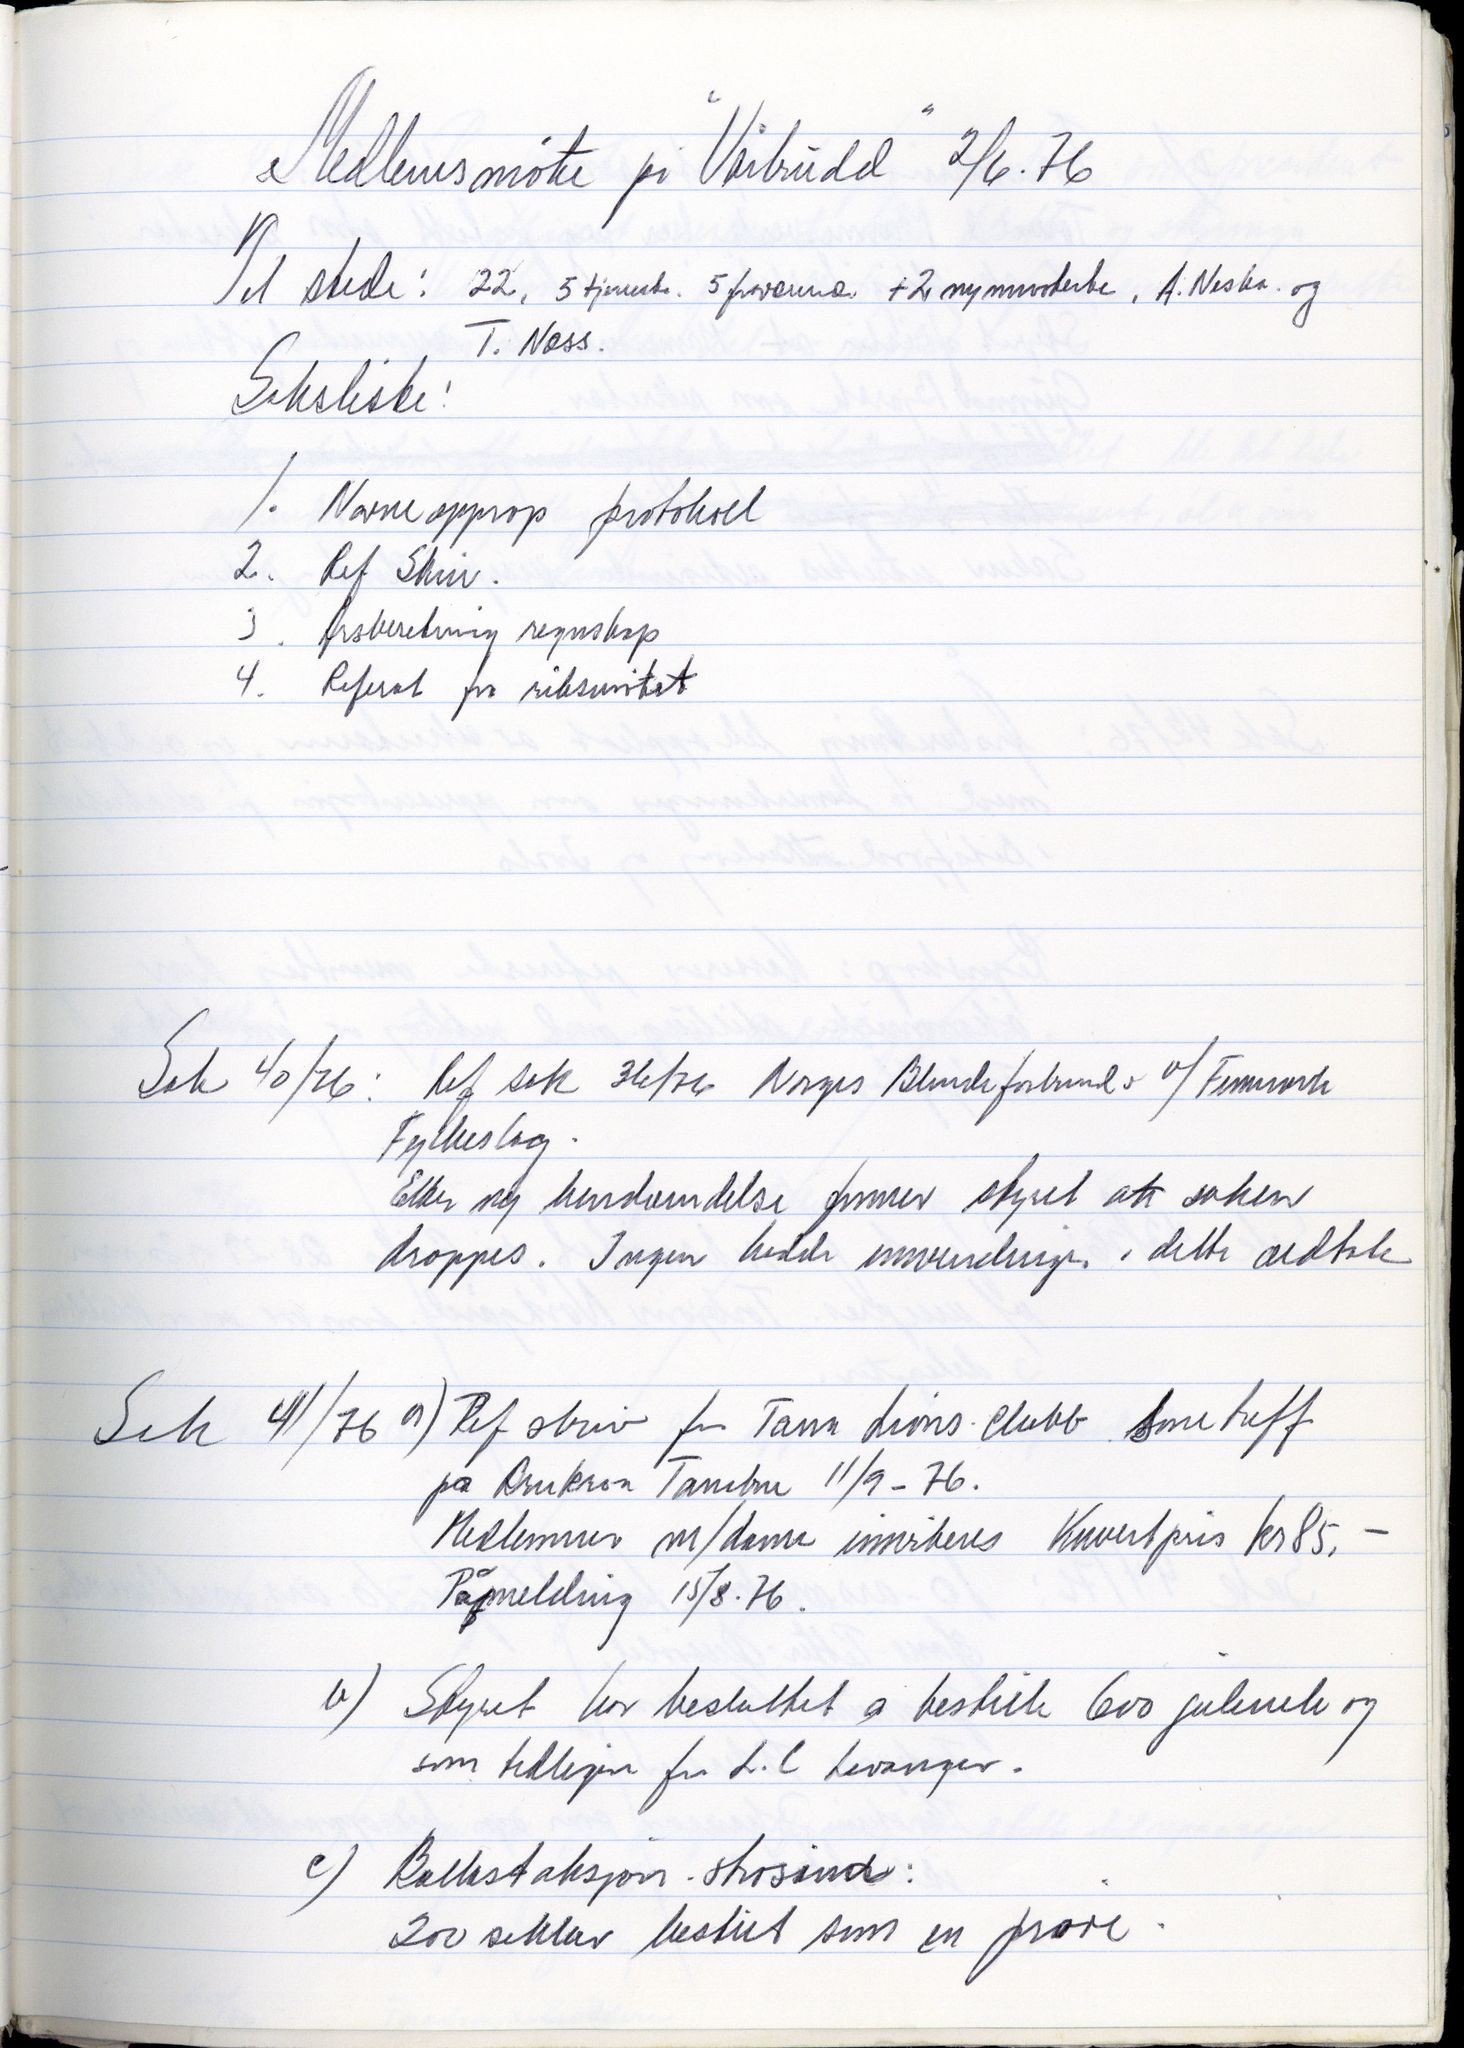 Medlemsmøte på "Vårbrudd" 2/6.76
Til stede: 22, 5 tjeneste. 5 fravær +2 nyinnvoterte, A. Neska. og
T. Næss.
Saksliste:
1. Navneopprop protokoll
2. Ref Skriv.
3. Årsberetning regnskap
4. Referat fra riksmøtet
Sak 40/76: Ref sak 36/76 Norges Blindeforbund v/ Finnmark
Fylkeslag.
Etter ny henvendelse finner styret at saken
droppes. Ingen hadde innvendinger i dette vedtak
Sak 41/76 a) Ref skriv fra Tana Lions-Clubb. Sone treff
på Tanabru 11/9-76.
Medlemmer m/dame inviteres Kuvertpris kr 85,-
Påmelding 15/8.76.
b) Styret har besluttet å bestille 600 julenek og
som tidligere fra L.C Levanger.
c) 200 sekker bestilt som en prøve.